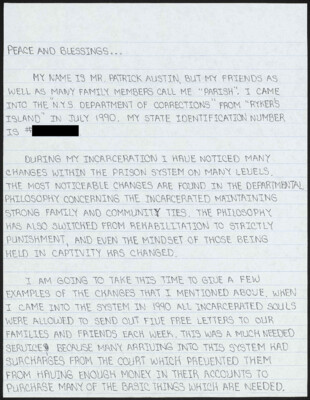 PEACE AND BLESSINGS...
MY NAME IS MR. PATRICK AUSTIN, BUT MY FRIENDS AS
WELL AS MANY FAMILY MEMBERS CALL ME "PARISH". I CAME
INTO THE N.Y.S DEPARTMENT OF CORRECTIONS" FROM "RYKER'S
ISLAND" IN JULY 1990. MY STATE IDENTIFICATION NUMBER
IS #
DURING MY INCARCERATION I HAVE NOTICED MANY
CHANGES WITHIN THE PRISON SYSTEM ON MANY LEVELS.
THE MOST NOTICEABLE CHANGES ARE FOUND IN THE DEPARTMENTAL
PHILOSOPHY CONCERNING THE INCARCERATED MAINTAINING
STRONG FAMILY AND COMMUNITY TIES. THE PHILOSOPHY
HAS ALSO SWITCHED FROM REHABILITATION TO STRICTLY
PUNISHMENT, AND EVEN THE MINDSET OF THOSE BEING
HELD IN CAPTIVITY HAS CHANGED.
I AM GOING TO TAKE THIS TIME TO GIVE A FEW
EXAMPLES OF THE CHANGES THAT I MENTIONED ABOVE. WHEN
I CAME INTO THE SYSTEM IN 1990 ALL INCARCERATED SOULS
WERE ALLOWED TO SEND OUT FIVE FREE LETTERS TO OUR
FAMILIES AND FRIENDS EACH WEEK. THIS WAS A MUCH NEEDED
SERVICE BECAUSE MANY ARRIVING INTO THIS SYSTEM HAD
SURCHARGES FROM THE COURT WHICH PREVENTED THEM
FROM HAVING ENOUGH MONEY IN THEIR ACCOUNTS TO
PURCHASE MANY OF THE BASIC THINGS WHICH ARE NEEDED.